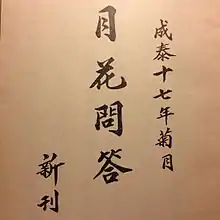 成泰十七年菊月
月花問答
新刊